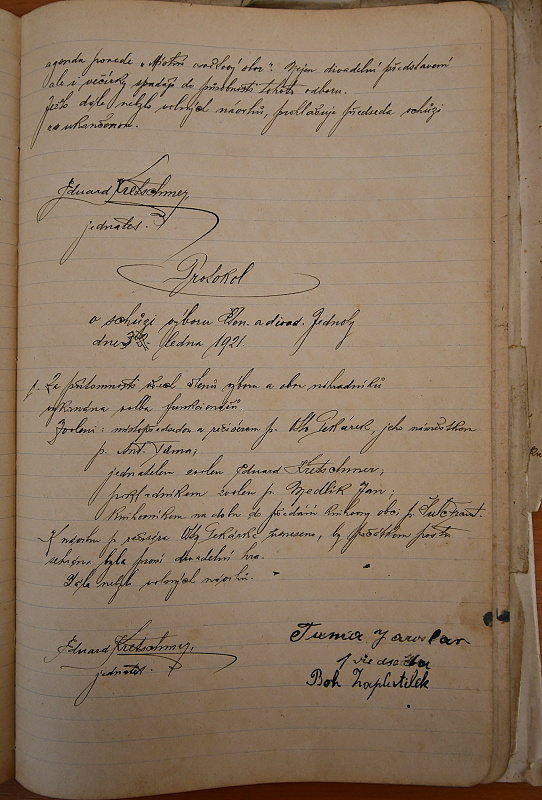 agenda povede „Místní osvětový sbor“. Nejen divadelní představení
ale i večírky spadají do působnosti tohoto odboru.
Ježto dále nebylo volných návrhů, prohlašuje předseda schůzi
za ukončenou.
Eduard Kretschmer,
jednatel.
Protokol
o schůzi výboru Čten. a divad. Jednoty
dne ledna 1921.
1. Za přítomnosti všech členů výboru a obou náhradníků
vykonána volba funkcionářů.
Zvoleni: místopředsedou a režisérem p. Pekárek, jeho náměstkem
p. Ant. Tůma;
jednatelem zvolen Eduard Kretschmer;
pokladníkem zvolen p. Medlík Jan;
knihovníkem na dobu do předání knihovny obci p. Šulc Frant.
K návrhu p. režiséra Pekárka usneseno, by počátkem postu
sehrána byla první divadelní hra.
Dále nebylo volných návrhů.
Eduard Kretschmer,
jednatel.
Tuma Jaroslav
předseda
Boh. Zaplatílek